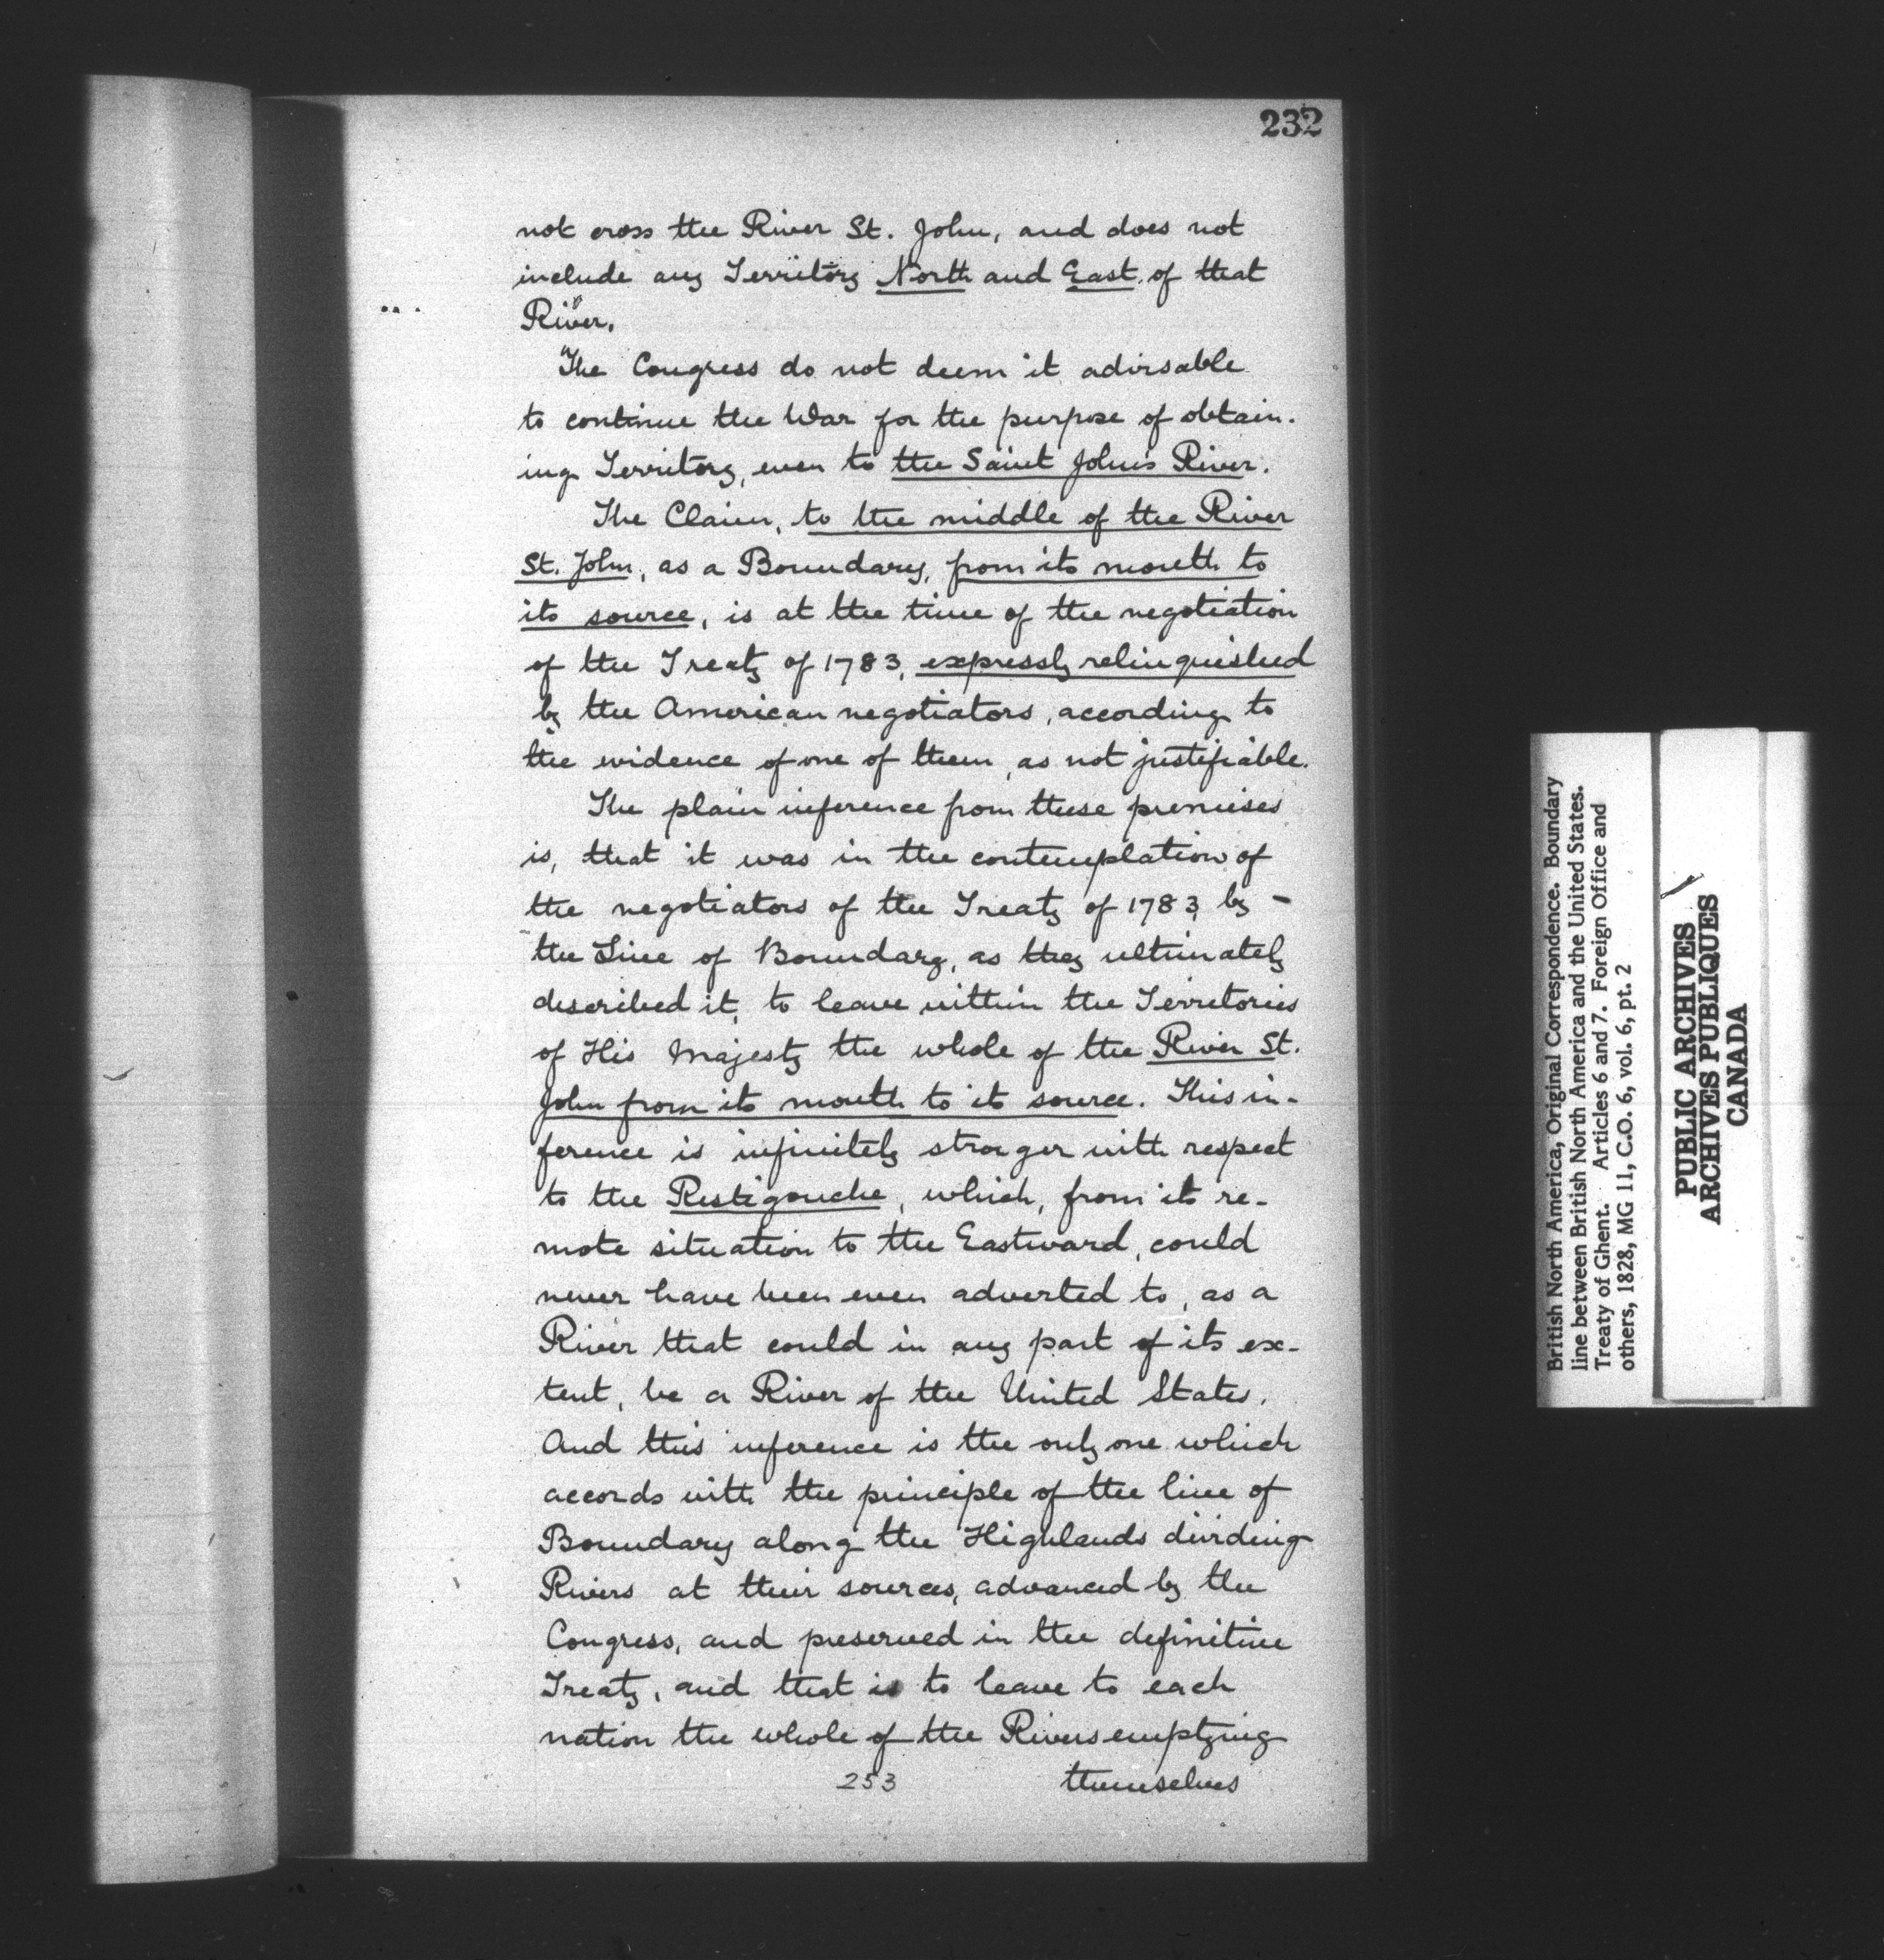 232
not cross the River St. John, and does not
include any Territory North and East of that
River."
"The Congress do not deem it advisable
to continue the War for the purpose of obtain-
ing Territory, even to the Saint John's River.
The Claim, to the middle of the River
St. John, as a Boundary, from its mouth to
its source, is at the time of the negotiation
of the Treaty of 1783, expressly relinquished
by the American negotiators, according to
the evidence of one of them, as not justifiable.
The plain inference from these premises
is, that it was in the contemplation of
the negotiators of the Treaty of 1783, by -
the Line of Boundary, as they ultimately
described it, to leave within the Territories
of His Majesty the whole of the River St.
John from its mouth to its source. This in-
ference is infinitely stronger with respect
to the Restigouche, which, from its re-
mote situation to the Eastward, could
never have been even adverted to, as a
River that could in any part of its ex-
tent, be a River of the United States.
And this inference is the only one which
accords with the principle of the line of
Boundary along the Highlands dividing
Rivers at their sources, advanced by the
Congress, and preserved in the definitive
Treaty, and that is to leave to each
nation the whole of the Rivers emptying
253 themselves
British North America, Original Correspondence. Boundary
line between British North America and the United States.
Treaty of Ghent. Articles 6 and 7. Foreign Office and
others, 1828, MG 11, C.O. 6, vol. 6, pt. 2
PUBLIC ARCHIVES
ARCHIVES PUBLIQUES
CANADA